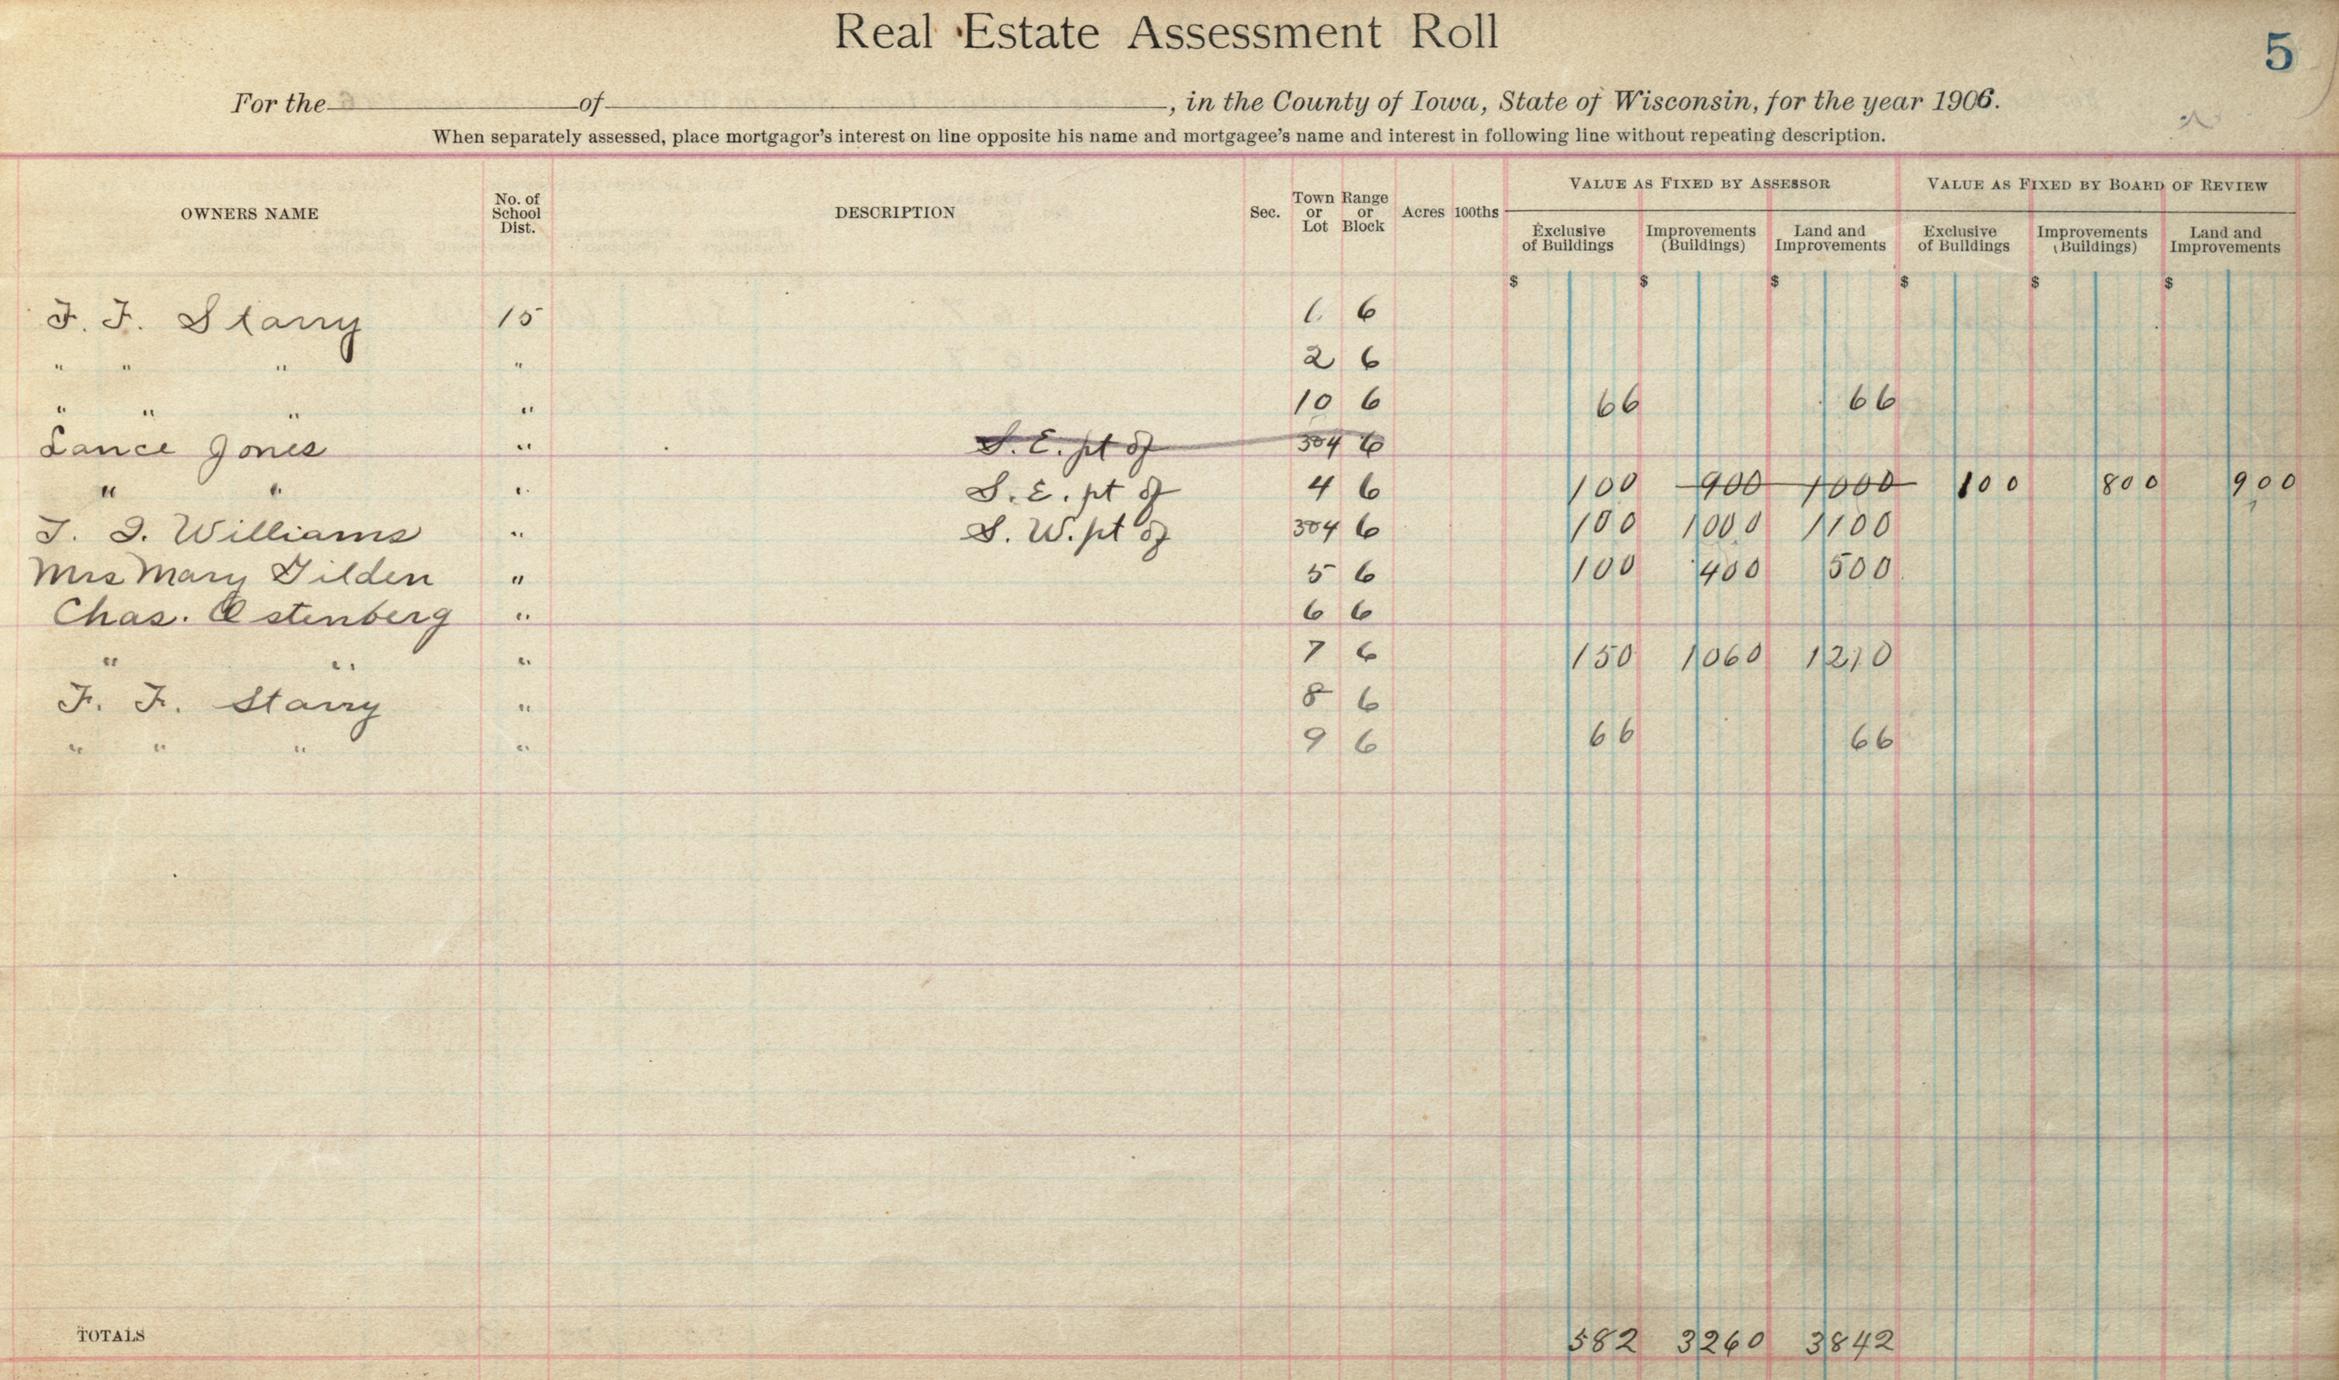 Real Estate Assessment Roll
5
For the of , in the County of Iowa, State of Wisconsin, for the year 1906.
When separately assessed, place mortgagor's interest on line opposite his name and mortgagee's name and interest in following line without repeating description.
OWNERS NAME No. of School Dist. DESCRIPTION Sec. Town or Lot Range or Block Acres 100ths VALUE AS FIXED BY ASSESSOR VALUE AS FIXED BY BOARD OF REVIEW
Exclusive of Buildings Improvements (Buildings) Land and Improvements Exclusive of Buildings Improvements (Buildings) Land and Improvements
$ $ $ $ $ $
F. F. Starry 15 1 6
" " " " 2 6
" " " " 10 6 66 66
Lance Jones " S. E. pt of 304 6
" " " S. E. pt of 4 6 100 900 1000 100 800 900
T. J. Williams " S. W. pt of 304 6 100 1000 1100
Mrs Mary Gilden " 5 6 100 400 500
Chas. Ostenberg " 6 6
" " " 7 6 150 1060 1210
F. F. Starry " 8 6
" " " " 9 6 66 66
TOTALS 582 3260 3842